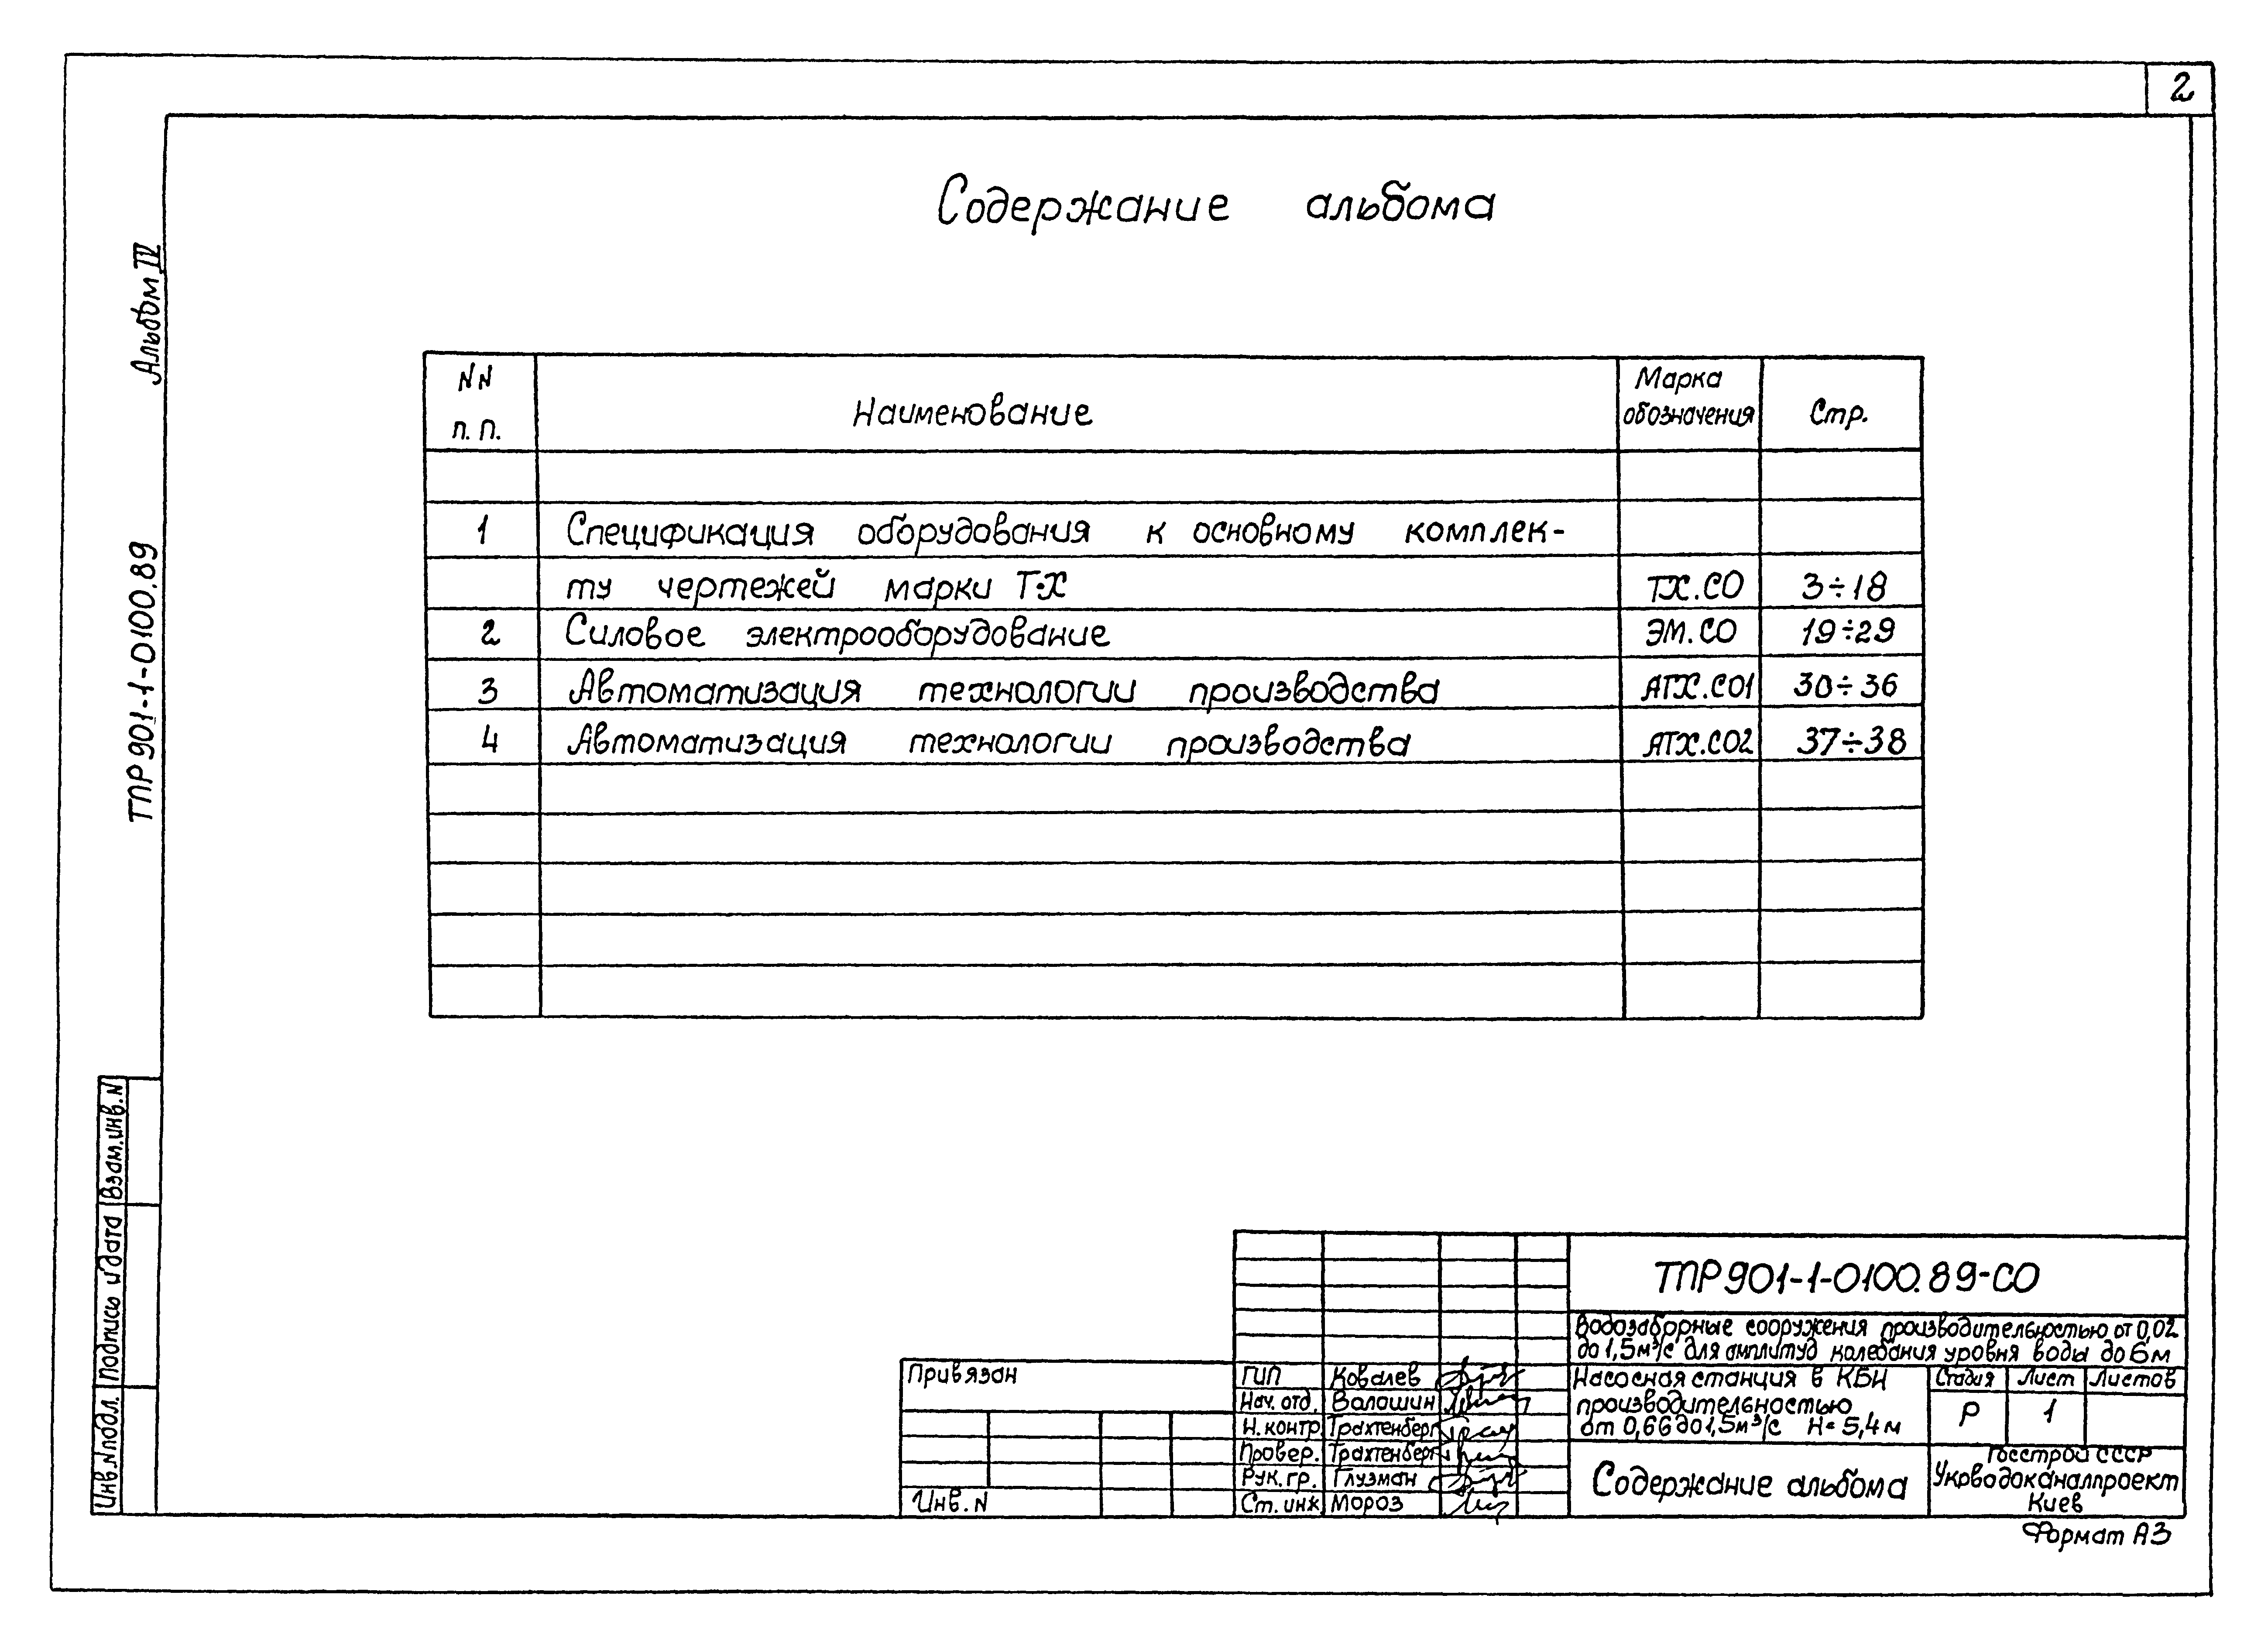 2
Содержание альбома
Альбом IV
ТПР 901-1-0100.89
NN п.п. Наименование Марка обозначения Стр.
1 Спецификация оборудования к основному комплек-
ту чертежей марки ТХ ТХ.СО 3÷18
2 Силовое электрооборудование ЭМ.СО 19÷29
3 Автоматизация технологии производства АТХ.СО1 30÷36
4 Автоматизация технологии производства АТХ.СО2 37÷38
Взам.инв.N
Подпись и дата
Инв.N подл.
ТПР 901-1-0100.89-СО
Водозаборные сооружения производительностью от 0,02
до 1,5м³/с для амплитуд колебания уровня воды до 6м
Привязан
Инв. N
ГИП Ковалев
Нач. отд. Волошин
Н. контр. Трахтенберг
Провер. Трахтенберг
Рук. гр. Глузман
Ст. инж. Мороз
Насосная станция в КБН
производительностью
от 0,66 до 1,5м³/с Н=5,4м
Стадия Лист Листов
Р 1
Содержание альбома
Госстрой СССР
Укрводоканалпроект
Киев
Формат А3